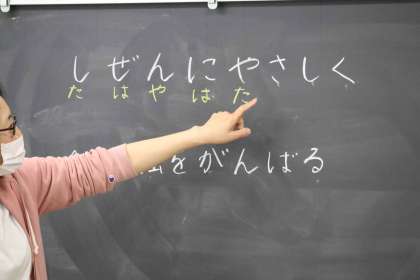 しぜんにやさしく
たはやばた
をがんばる